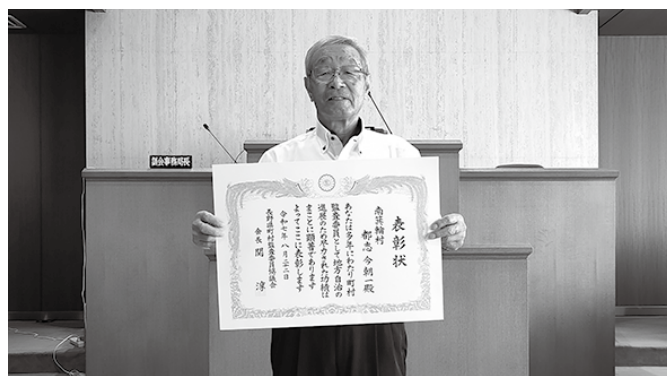 議会事務局長
表彰状
南箕輪村
都志今朝一殿
あなたは多年にわたり町村
監査委員として地方自治の
進展のため尽力された功績は
まことに顕著であります
よってここに表彰します
令和七年八月二十二日
長野県町村監査委員協議会
会長 関 淳